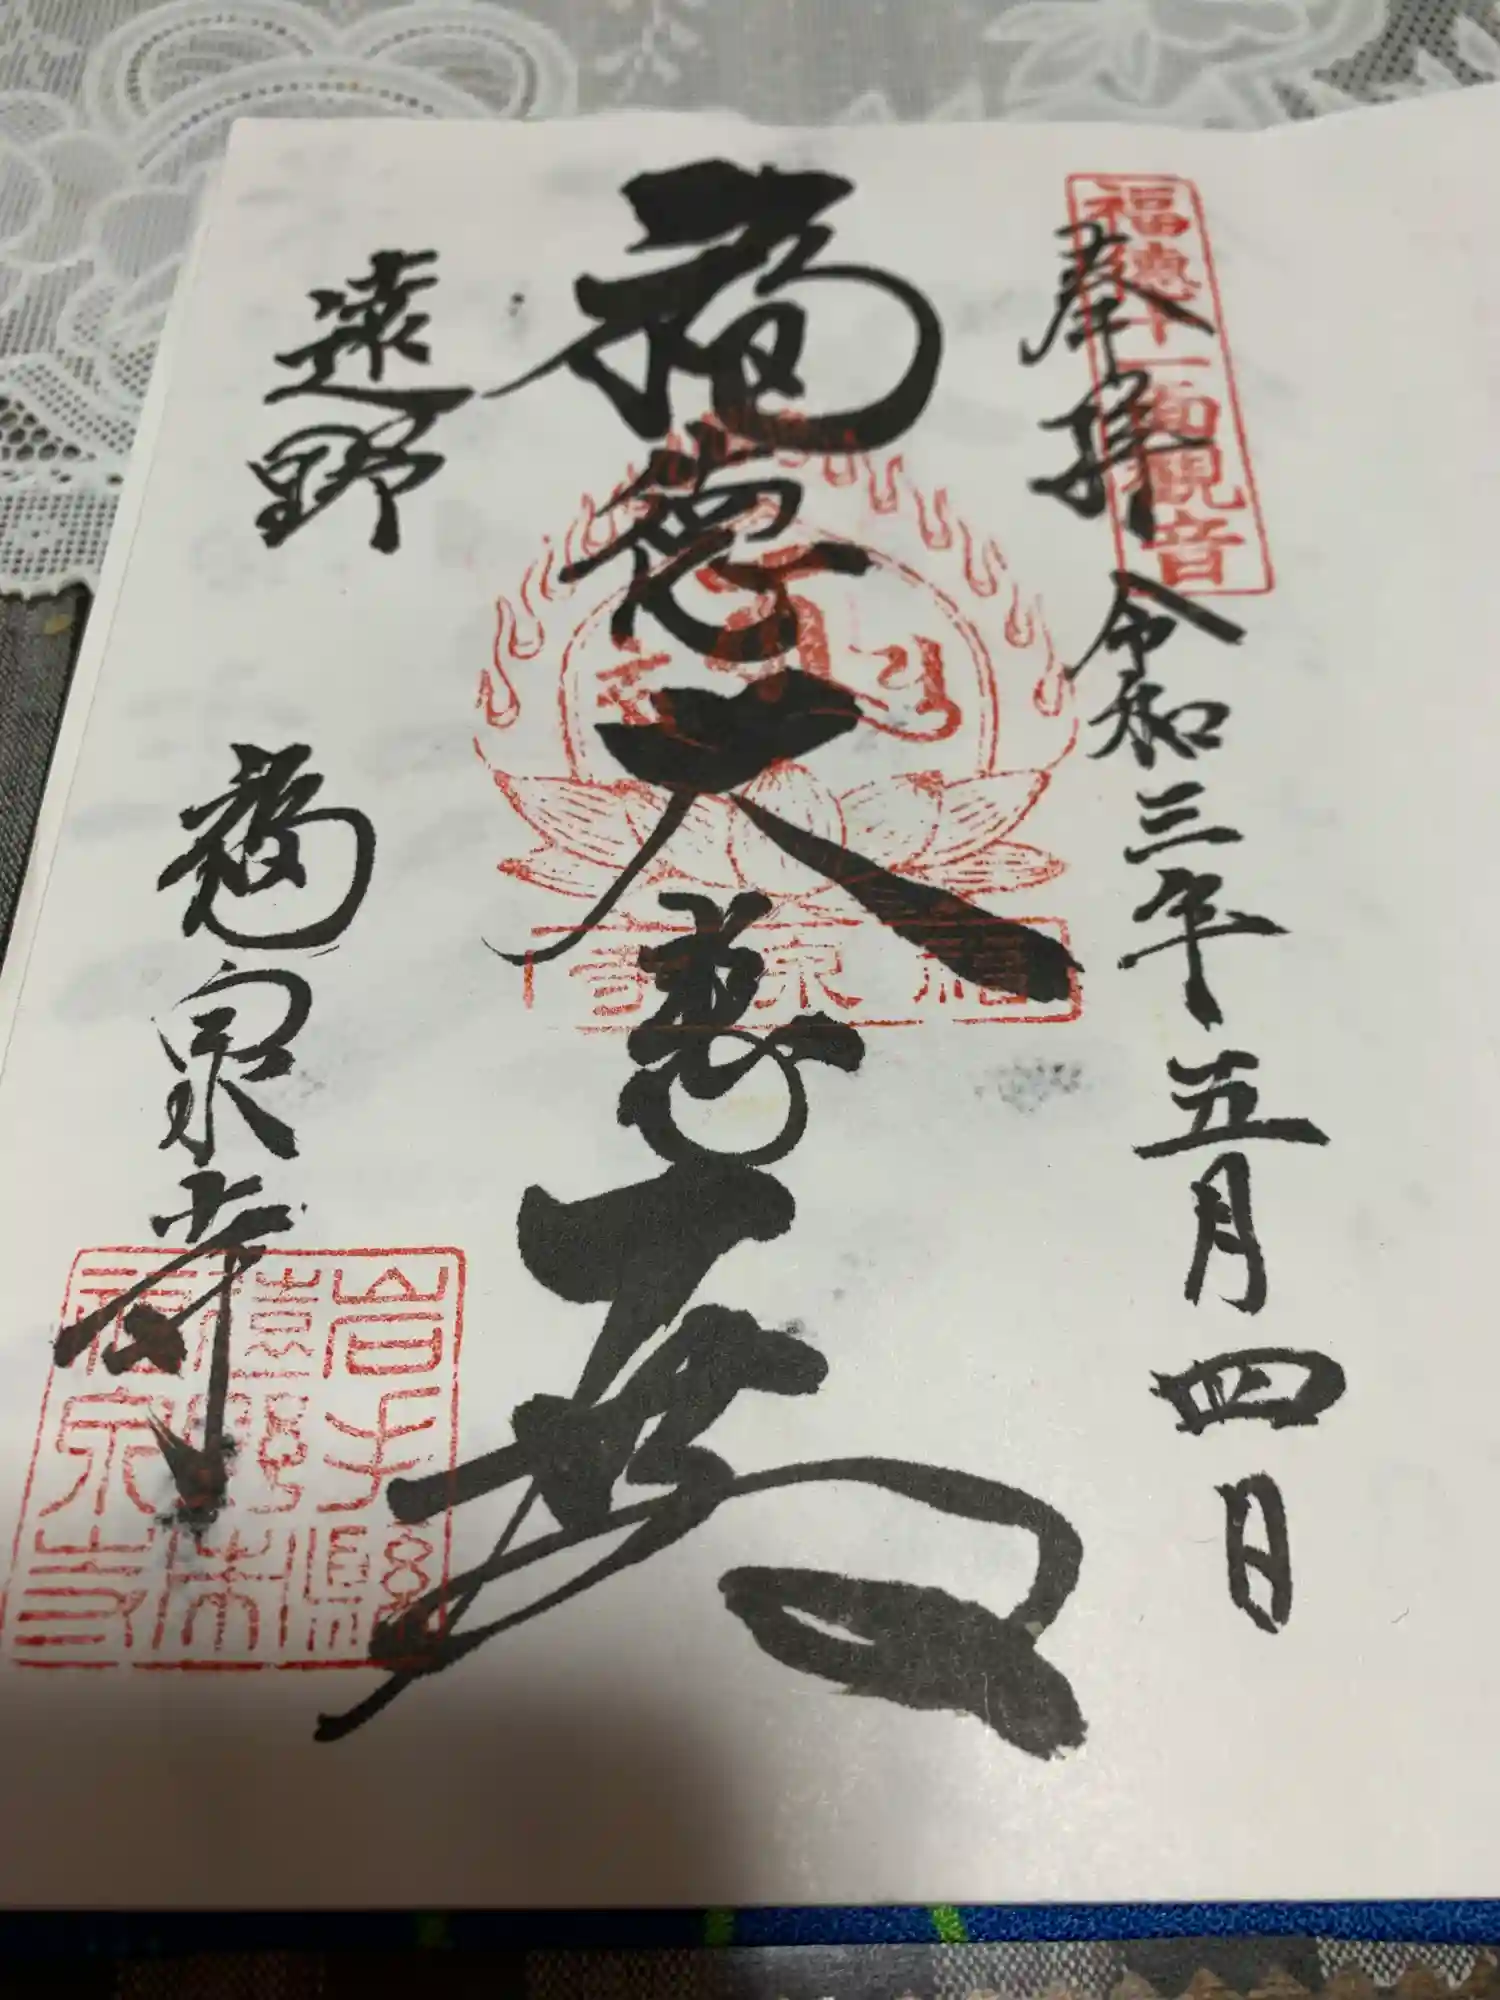 福徳十一面観音
奉拝
令和三年五月四日
福徳大悲殿
福泉寺
遠野
福泉寺
岩手縣
遠野市
福泉寺